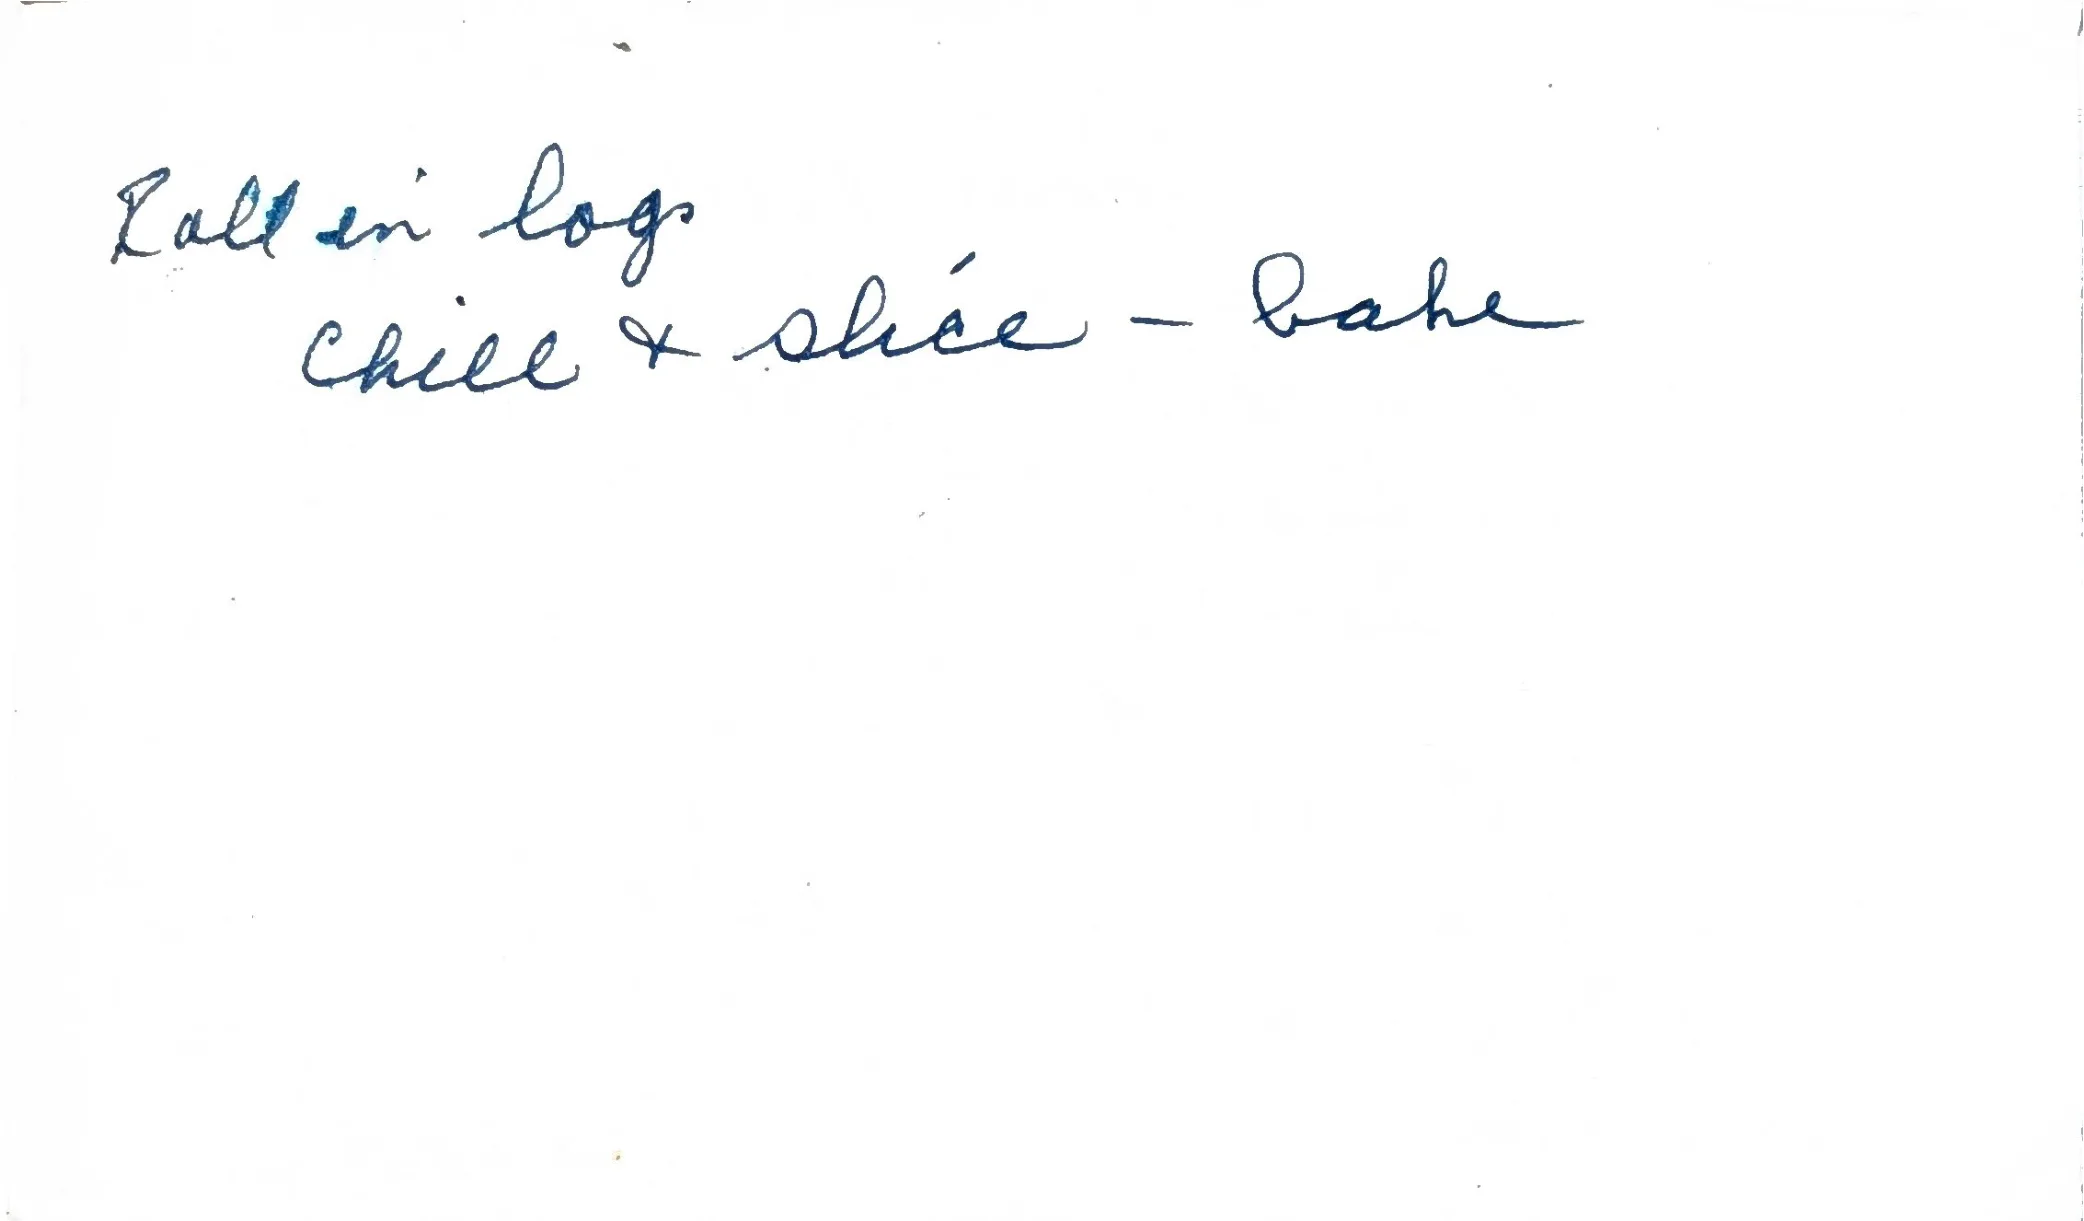 Roll in logs
Chill & slice - bake